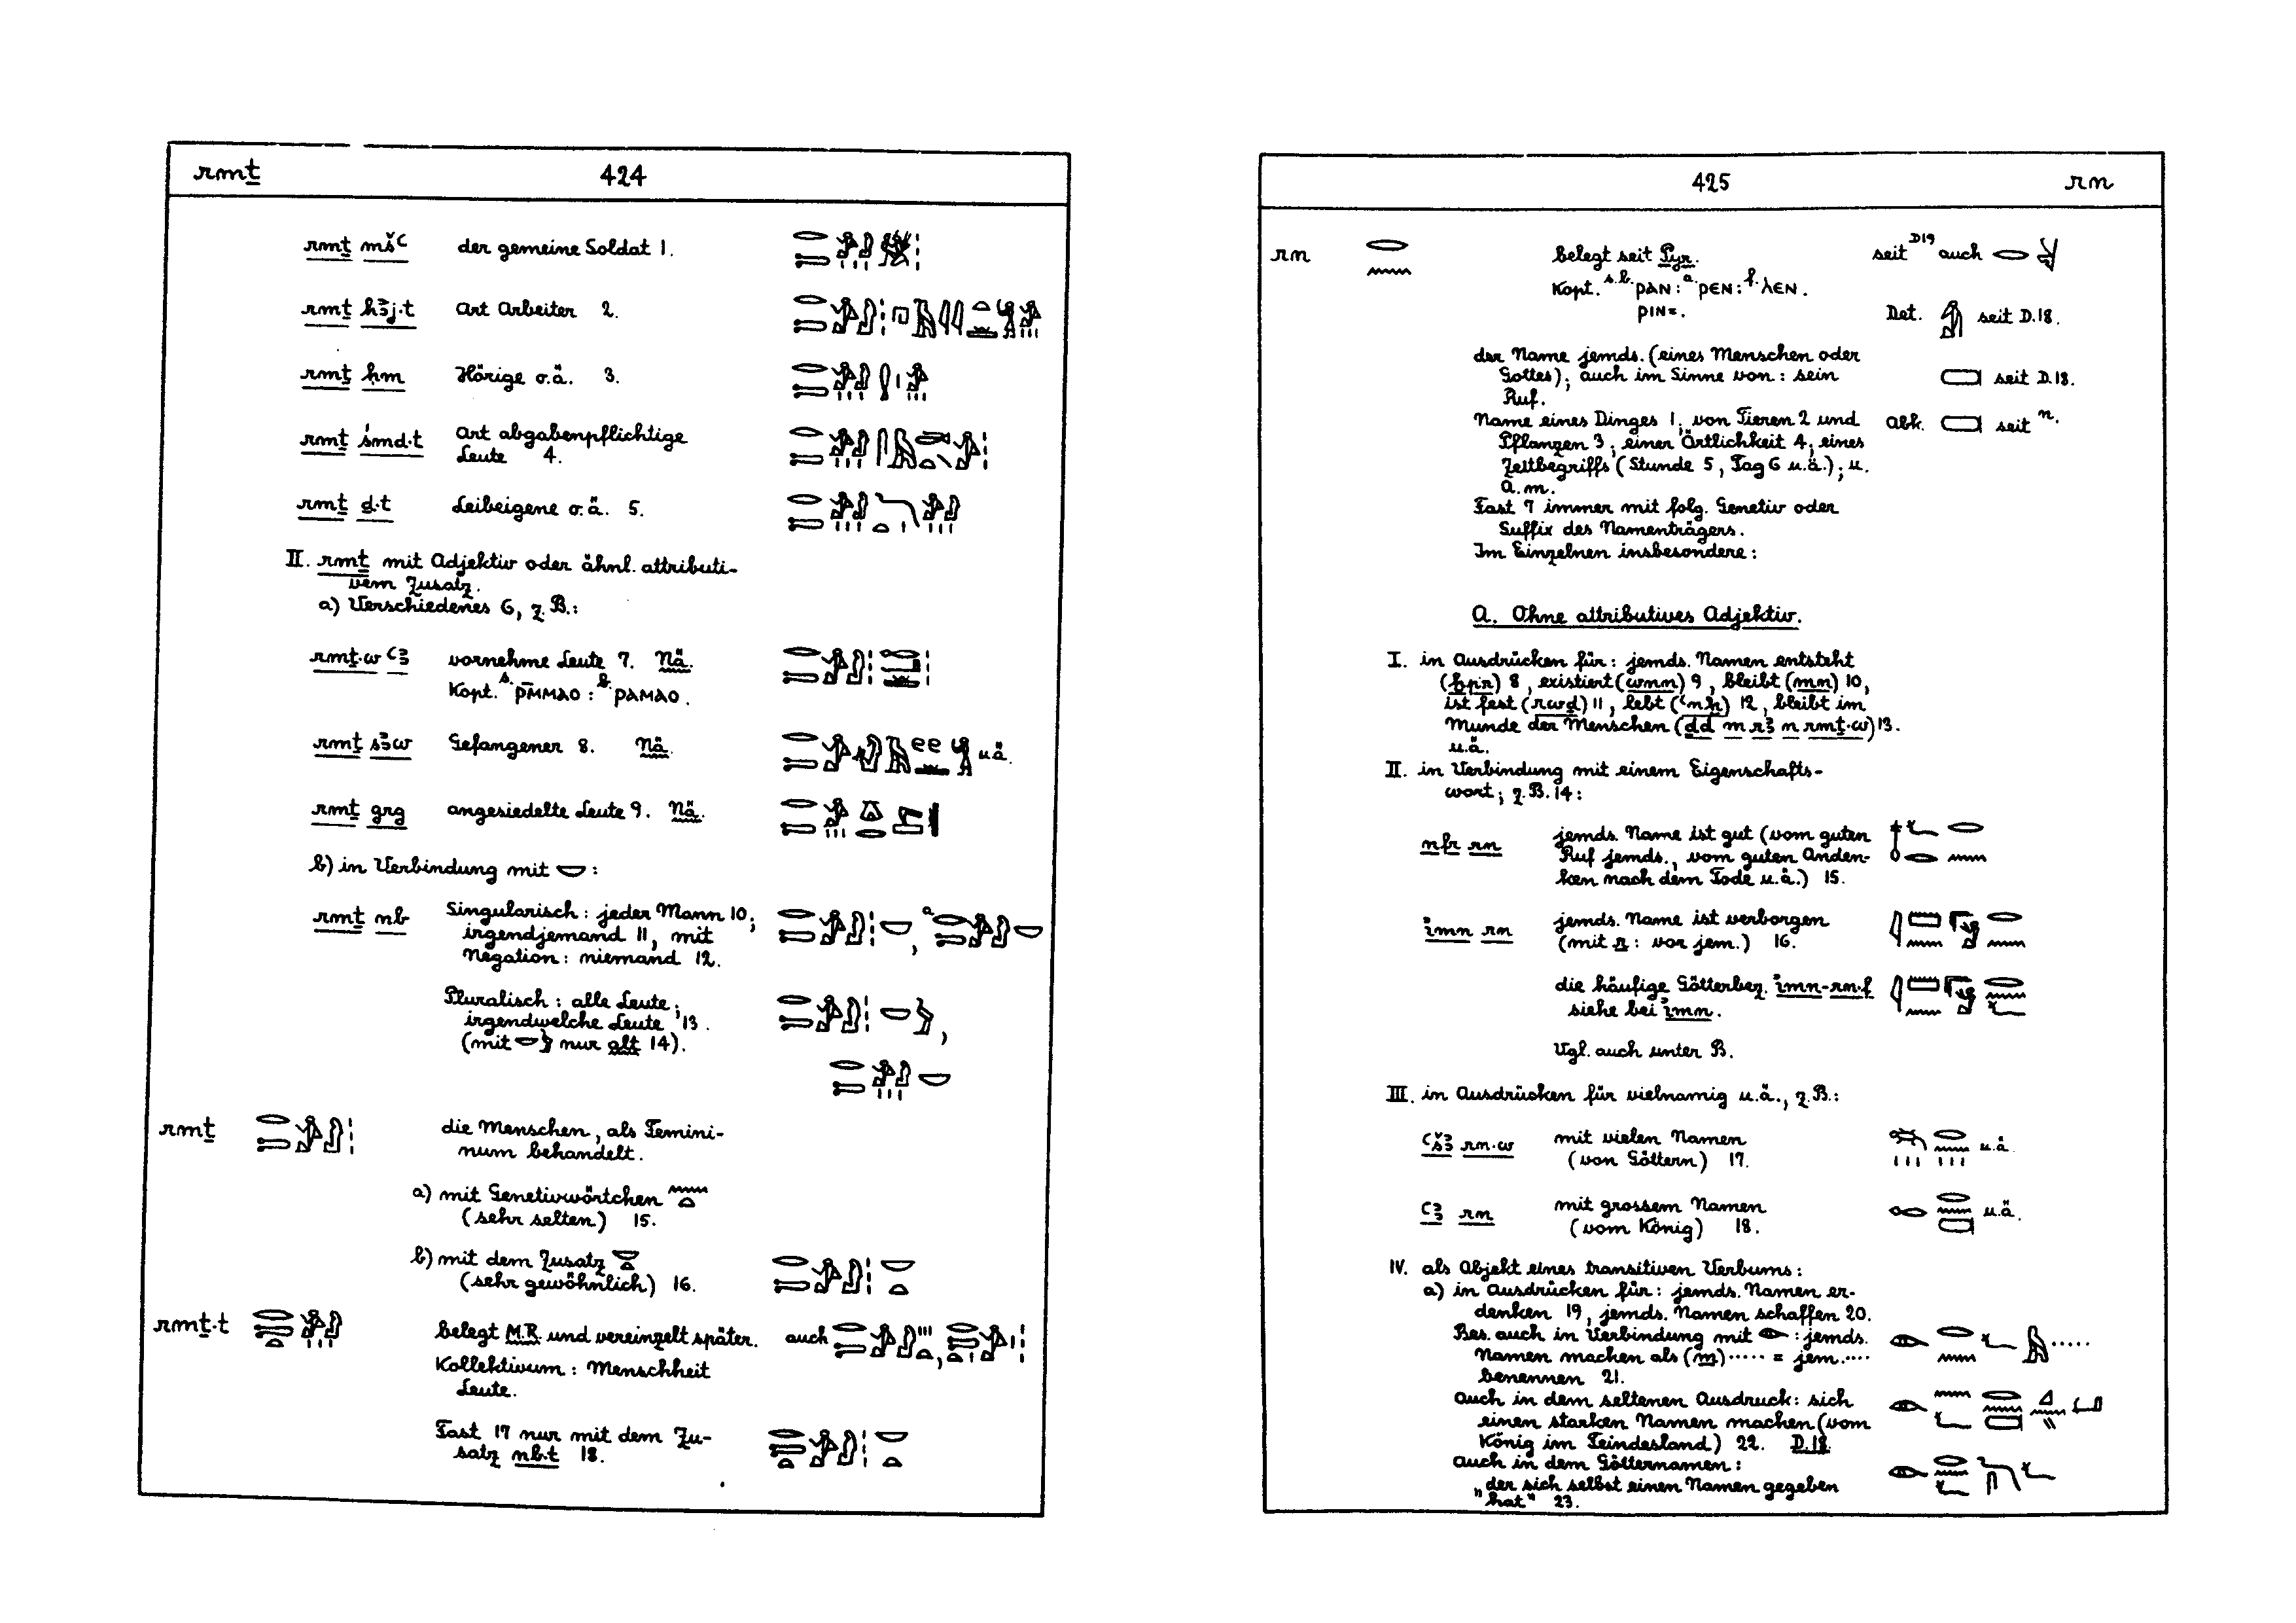 rmṯ 424
rmṯ mšꜥ der gemeine Soldat 1.
rmṯ hꜣj·t Art Arbeiter 2.
rmṯ ḥm Hörige o.ä. 3.
rmṯ śmd·t Art abgabenpflichtige
Leute 4.
rmṯ ḏ·t Leibeigene o.ä. 5.
II. rmṯ mit Adjektiv oder ähnl. attributi-
vem Zusatz.
a) Verschiedenes 6, z.B.:
rmṯ·w ꜥꜣ vornehme Leute 7. Nä.
Kopt. s. ⲣⲙ̄ⲙⲁⲟ : b. ⲣⲁⲙⲁⲟ.
rmṯ sꜣw Gefangener 8. Nä. u.ä.
rmṯ grg angesiedelte Leute 9. Nä.
b) in Verbindung mit 𓎟 :
rmṯ nb Singularisch: jeder Mann 10;
irgendjemand 11, mit
Negation: niemand 12.
Pluralisch: alle Leute;
irgendwelche Leute 13.
(mit nur alt 14).
rmṯ die Menschen, als Femini-
num behandelt.
a) mit Genetivwörtchen 𓈖𓏏
(sehr selten) 15.
b) mit dem Zusatz 𓎟𓏏
(sehr gewöhnlich) 16.
rmṯ·t belegt M.R. und vereinzelt später. auch
Kollektivum: Menschheit
Leute.
Fast 17 nur mit dem Zu-
satz nb·t 18.
425 rn
rn 𓂋𓈖 belegt seit Pyr. seit D19 auch
Kopt. s.b. ⲣⲁⲛ : a. ⲣⲉⲛ : f. ⲗⲉⲛ.
ⲣⲓⲛ=. Det. 𓀁 seit D.18.
der Name jemds. (eines Menschen oder
Gottes); auch im Sinne von: sein 𓍷 seit D.18.
Ruf.
Name eines Dinges 1, von Tieren 2 und Abk. 𓍷 seit n.
Pflanzen 3; einer Örtlichkeit 4; eines
Zeitbegriffs (Stunde 5, Tag 6 u.ä.); u.
a.m.
Fast 7 immer mit folg. Genetiv oder
Suffix des Namenträgers.
Im Einzelnen insbesondere:
A. Ohne attributives Adjektiv.
I. in Ausdrücken für: jemds. Namen entsteht
(ḫpr) 8, existiert (wnn) 9, bleibt (mn) 10,
ist fest (rwḏ) 11, lebt (ꜥnḫ) 12, bleibt im
Munde der Menschen (ḏd m rꜣ n rmṯ·w) 13.
u.ä.
II. in Verbindung mit einem Eigenschafts-
wort; z.B. 14:
nfr rn jemds. Name ist gut (vom guten 𓄤𓆑𓂋 𓂋𓈖
Ruf jemds., vom guten Anden-
ken nach dem Tode u.ä.) 15.
imn rn jemds. Name ist verborgen
(mit r: vor jem.) 16.
die häufige Götterbez. imn-rn·f
siehe bei imn.
Vgl. auch unter B.
III. in Ausdrücken für vielnamig u.ä., z.B.:
ꜥšꜣ rn·w mit vielen Namen u.ä.
(von Göttern) 17.
ꜥꜣ rn mit grossem Namen u.ä.
(vom König) 18.
IV. als Objekt eines transitiven Verbums:
a) in Ausdrücken für: jemds. Namen er-
denken 19, jemds. Namen schaffen 20.
Bes. auch in Verbindung mit 𓁹 : jemds. 𓁹 𓂋𓈖 𓆑 𓅓 .....
Namen machen als (m)..... = jem.....
benennen 21.
auch in dem seltenen Ausdruck: sich
einen starken Namen machen (vom
König im Feindesland) 22. D.18.
auch in dem Götternamen:
„der sich selbst einen Namen gegeben
hat" 23.